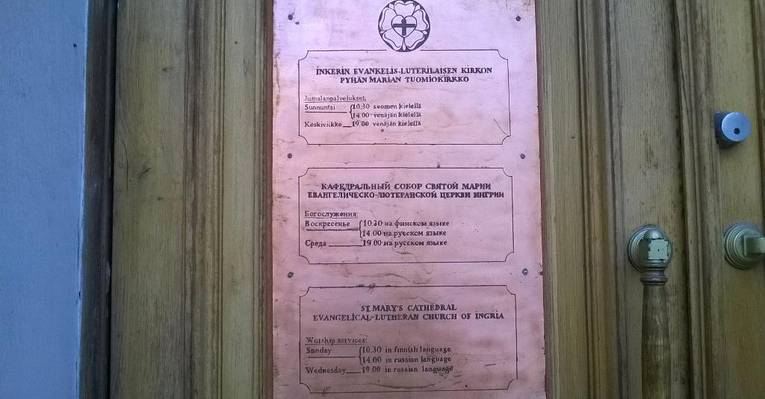 INKERIN EVANKELIS-LUTERILAISEN KIRKON
PYHÄN MARIAN TUOMIOKIRKKO
Jumalanpalvelukset:
Sunnuntai 10.30 suomen kielellä
14.00 venäjän kielellä
Keskiviikko 19.00 venäjän kielellä
КАФЕДРАЛЬНЫЙ СОБОР СВЯТОЙ МАРИИ
ЕВАНГЕЛИЧЕСКО-ЛЮТЕРАНСКОЙ ЦЕРКВИ ИНГРИИ
Богослужения:
Воскресенье 10.30 на финском языке
14.00 на русском языке
Среда 19.00 на русском языке
ST MARY'S CATHEDRAL
EVANGELICAL-LUTHERAN CHURCH OF INGRIA
Worship services:
Sunday 10.30 in finnish language
14.00 in russian language
Wednesday 19.00 in russian language